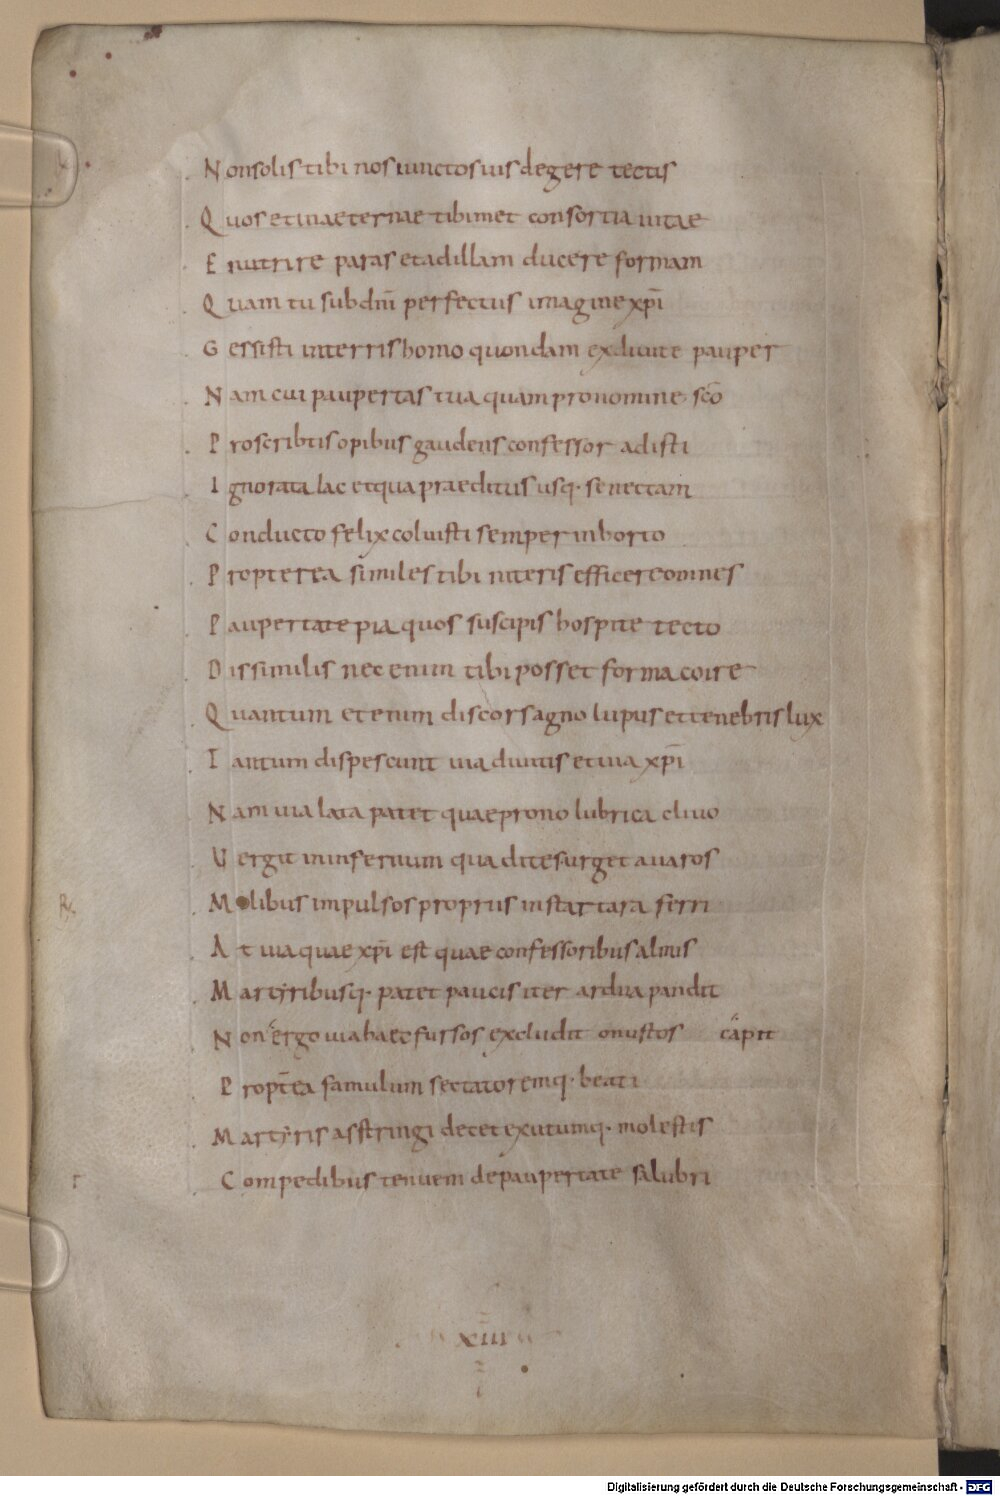 Non solis tibi nos iunctos uis degere tectis
Quos etiu aeternae tibimet consortia uitae
Enutrire paras et ad illam ducere formam
Quam tu sub dñi perfectus imagine xp̄i
Gessisti in terris homo quondam ex diuite pauper
Nam cui paupertas tua quam pro nomine sc̄o
Proscribtis opibus gaudens confessor adisti
Ignorata lac et qua praeditus usq· senectam
Conducto felix coluisti semper in horto
Propterea similes tibi niteris efficere omnes
Paupertate pia quos suscipis hospite tecto
Dissimilis nec enim tibi posset forma coire
Quantum etenim discors agno lupus et tenebris lux
Tantum dispescunt uia diuitis et uia xp̄i
Nam uia lata patet quae prono lubrica cliuo
Uergit in infernum qua dites urget auaros
Molibus impulsos propriis in startara ferri
At uia quae xp̄i est quae confessoribus almis
Martyribusq· patet paucis iter ardua pandit
Non ergo uia haec fursos excludit onustos capit
Propt̄ea famulum sectatoremq· beati
Martyris asstringi decet exutumq· molestis
Compedibus tenuem de paupertate salubri
xiiii
Digitalisierung gefördert durch die Deutsche Forschungsgemeinschaft - DFG